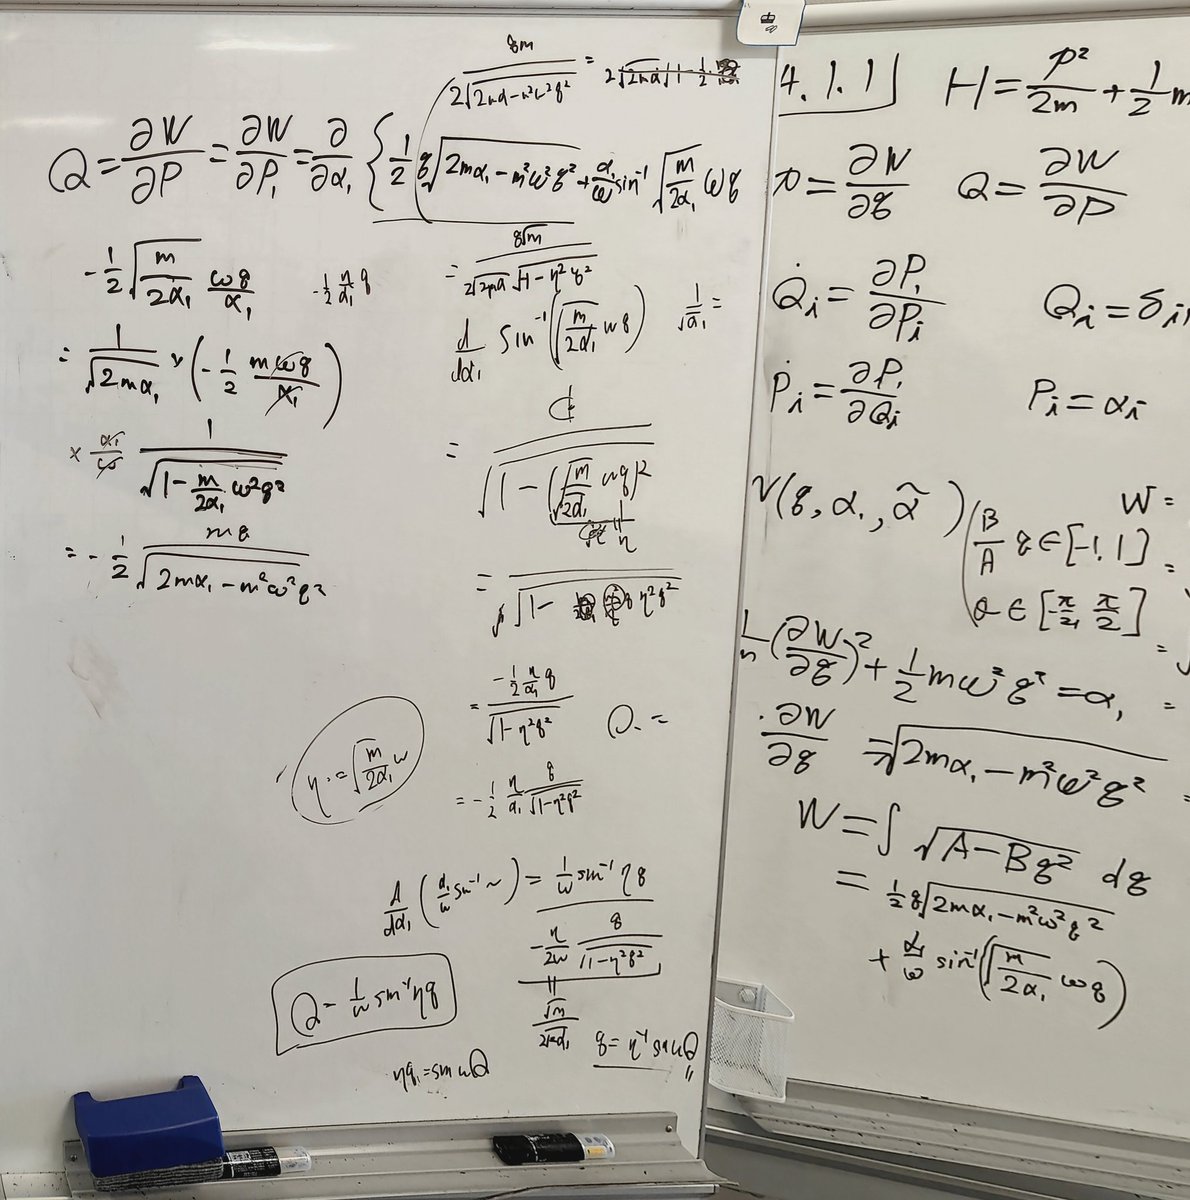 Q = ∂W/∂P = ∂W/∂P₁ = ∂/∂α₁ { 1/2 q√(2mα₁ − m²ω²q²) + α₁/ω sin⁻¹ √(m/2α₁) ωq
−1/2 √(m/2α₁) ωq/α₁
−1/2 η/α₁ q
= 1/√(2mα₁) × (−1/2 mωq/α₁)
× α₁/ω 1/√(1 − m/2α₁ ω²q²)
= −1/2 mq/√(2mα₁ − m²ω²q²)
qm/2√(2mα − m²ω²q²) =
= q√m/2√(2mα)√(1 − η²q²)
d/dα₁ sin⁻¹(√(m/2α₁) ωq)
1/√α₁ =
= /√(1 − (√(m/2α₁) ωq)²)
= −1/2 η/α₁ q/√(1 − η²q²)
Q. =
= −1/2 η/α₁ q/√(1 − η²q²)
η := √(m/2α₁) ω
d/dα₁ (α₁/ω sin⁻¹ ~) = 1/ω sin⁻¹ ηq
−η/2ω q/√(1 − η²q²)
Q = 1/ω sin⁻¹ ηq
ηq = sin ωQ
q = η⁻¹ sin ωQ
4.1.1
H = p²/2m + 1/2 m
p = ∂W/∂q Q = ∂W/∂P
Q̇ᵢ = ∂P₁/∂Pᵢ Qᵢ = δᵢ
Ṗᵢ = ∂P₁/∂Qᵢ Pᵢ = αᵢ
(q, α₁, α̃)
W =
B/A q ∈ [−1, 1]
θ ∈ [−π/2, π/2]
(∂W/∂q)² + 1/2 mω²q² = α₁
∂W/∂q = √(2mα₁ − m²ω²q²)
W = ∫ √(A − Bq²) dq
= 1/2 q√(2mα₁ − m²ω²q²)
+ α₁/ω sin⁻¹(√(m/2α₁) ωq)